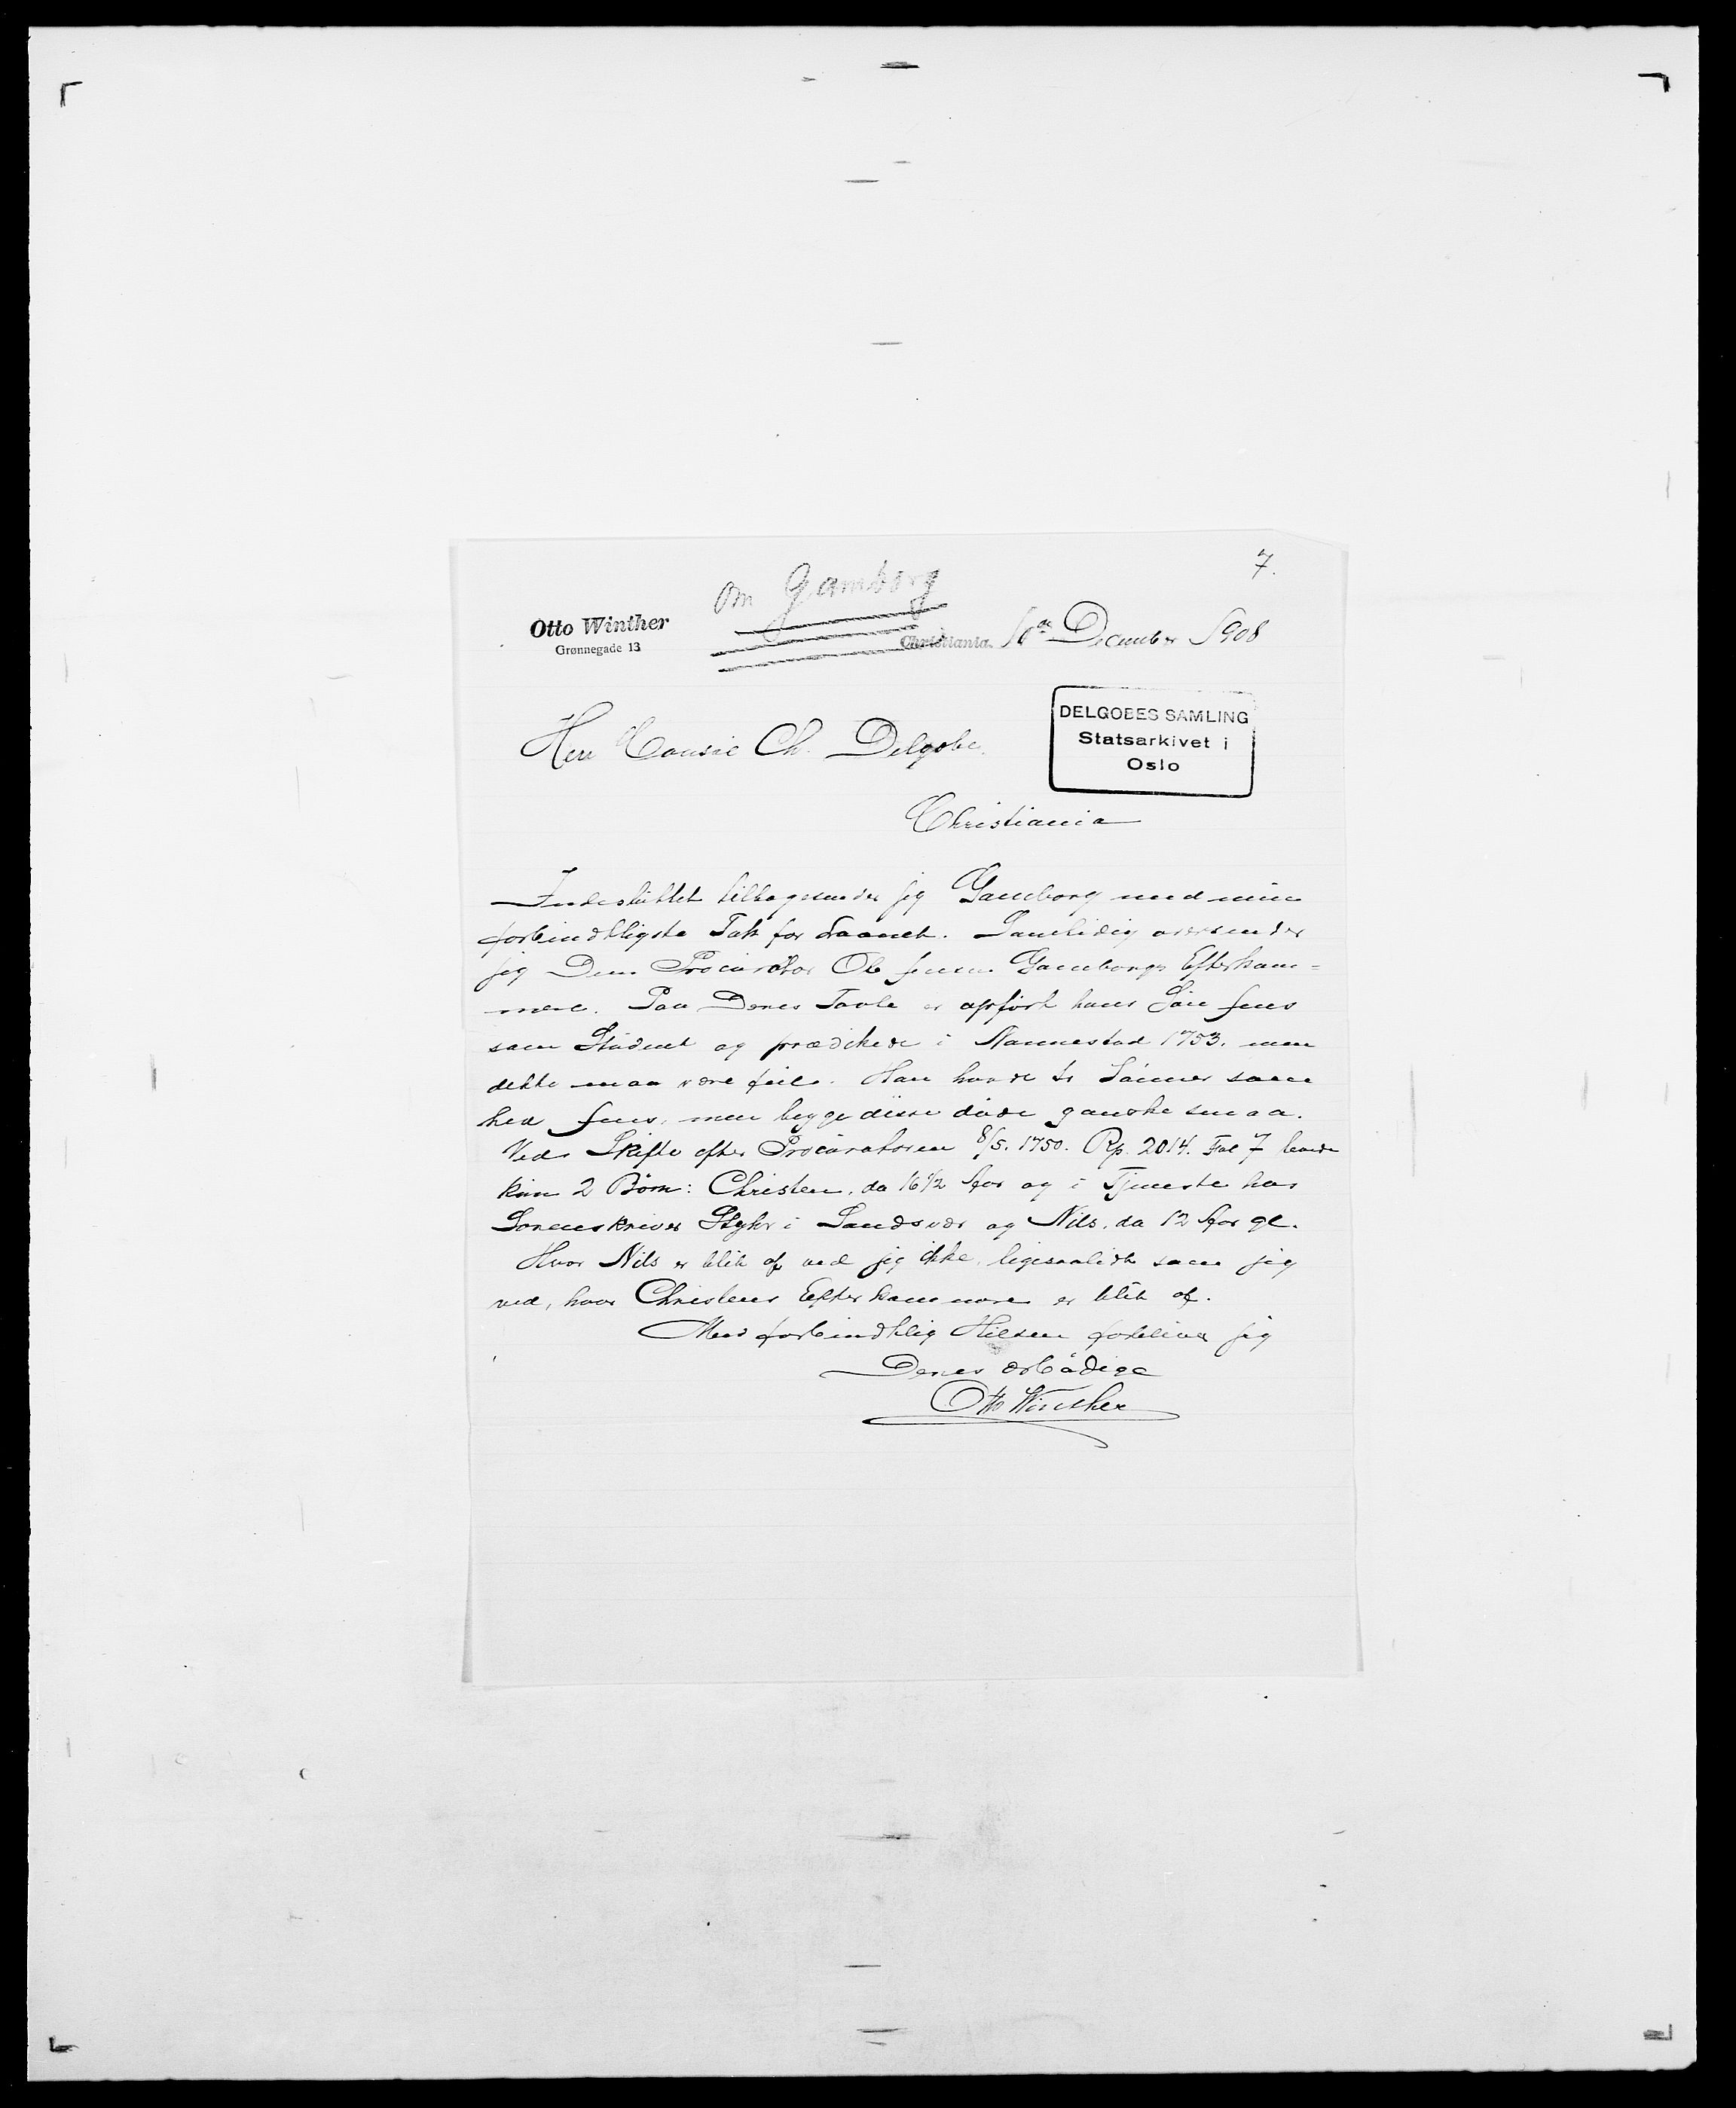 7.
Om Gamborg
Otto Winther
Grønnegade 13
Christiania 10de December 1908
DELGOBES SAMLING
Statsarkivet i
Oslo
Herr Consul Ch. Delgobe.
Christiania
Indesluttet tilbagesender jeg Gamborg med min
forbindtligste Tak for Laanet. Samtidig oversender
jeg Dem Procurator Ole Jensen Gamborgs Efterkom=
mere. Paa Deres Tavle er opført hans Søn Jens
som Student og prædikede i Nannestad 1753. men
dette maa være feil. Han havde to Sønner som
hed Jens, men begge disse døde ganske smaa.
Ved Skifte efter Procuratoren 8/5. 1750. Rp. 2014. Fol 7 levede
kun 2 Børn: Christen, da 16 1/2 Aar og i Tjeneste hos
Sorenskriver Styhr i Sandsvær og Nils, da 12 Aar gl.
Hvor Nils er blit af ved jeg ikke, ligesaalidt som jeg
ved, hvor Christens Efterkommere er blit af.
Med forbindtlig Hilsen forbliver jeg
Deres ærbødige
Otto Winther